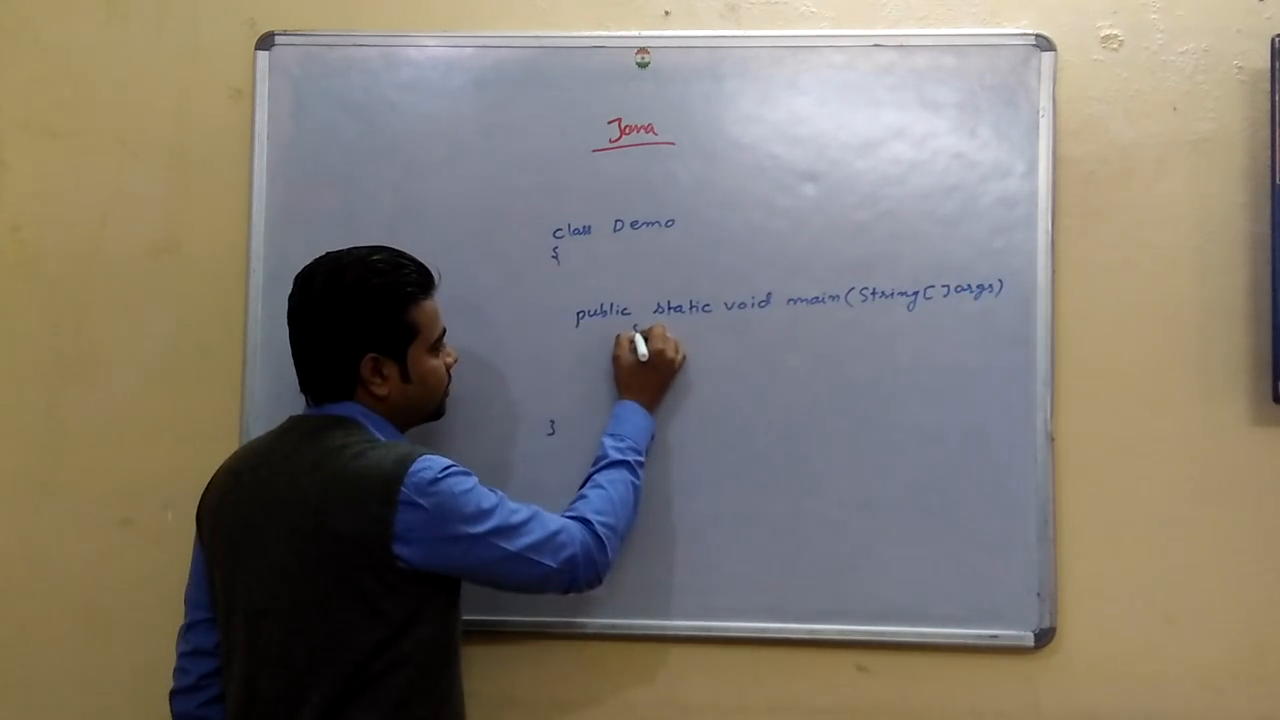 Java
class Demo
{
public static void main(String[]args)
{
}